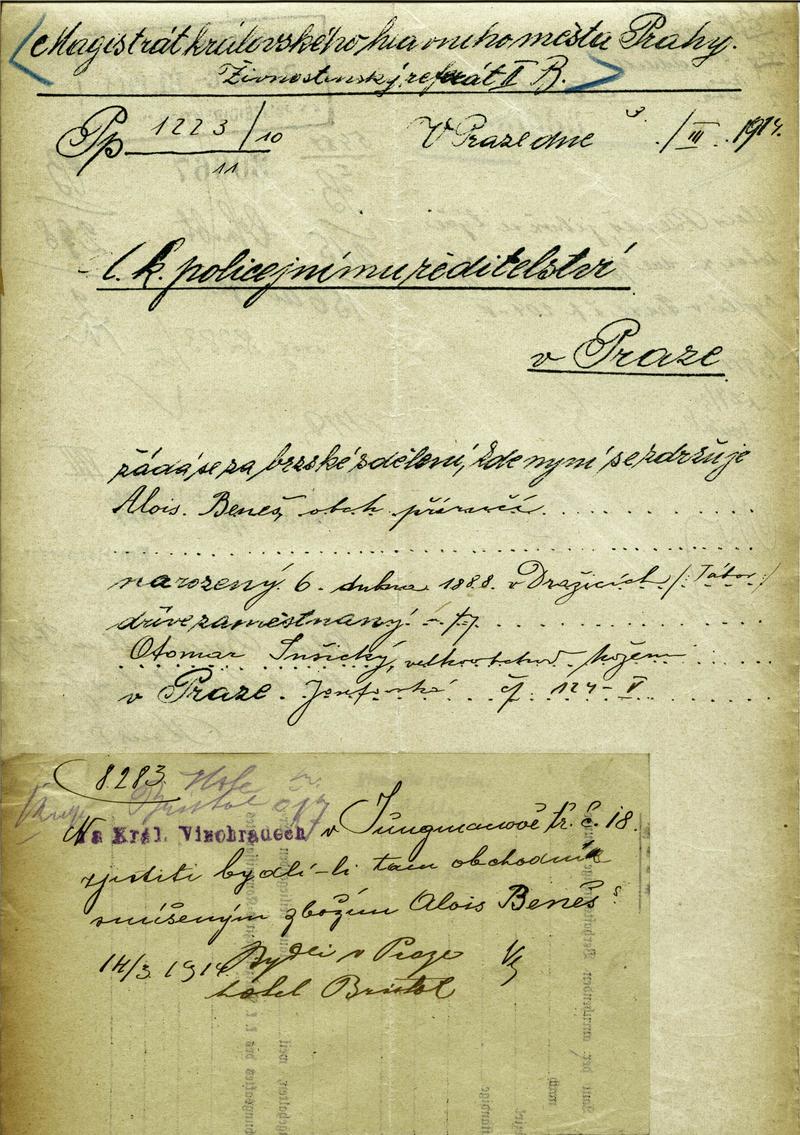 Magistrát královského hlavního města Prahy.
Živnostenský referát II B.
Pp 1223/10
11
V Praze dne /III. 1914.
C. k. policejnímu ředitelství
v Praze
žádá se za brzské sdělení, kde nyní se zdržuje
Alois Beneš, obch. příručí
narozený 6. dubna 1888 v Dražicích /: Tábor :/
dříve zaměstnaný
Otomar Sušický, velkoobchod kožemi
v Praze. Josefovské čp. 124-V
8283.
Hotel
Bristol
Na Král. Vinohradech v Jungmanově tř. č. 18.
zjistiti bydlí-li tam obchodník
smíšeným zbožím Alois Beneš
14/3 1914 Bydlí v Praze
hotel Bristol